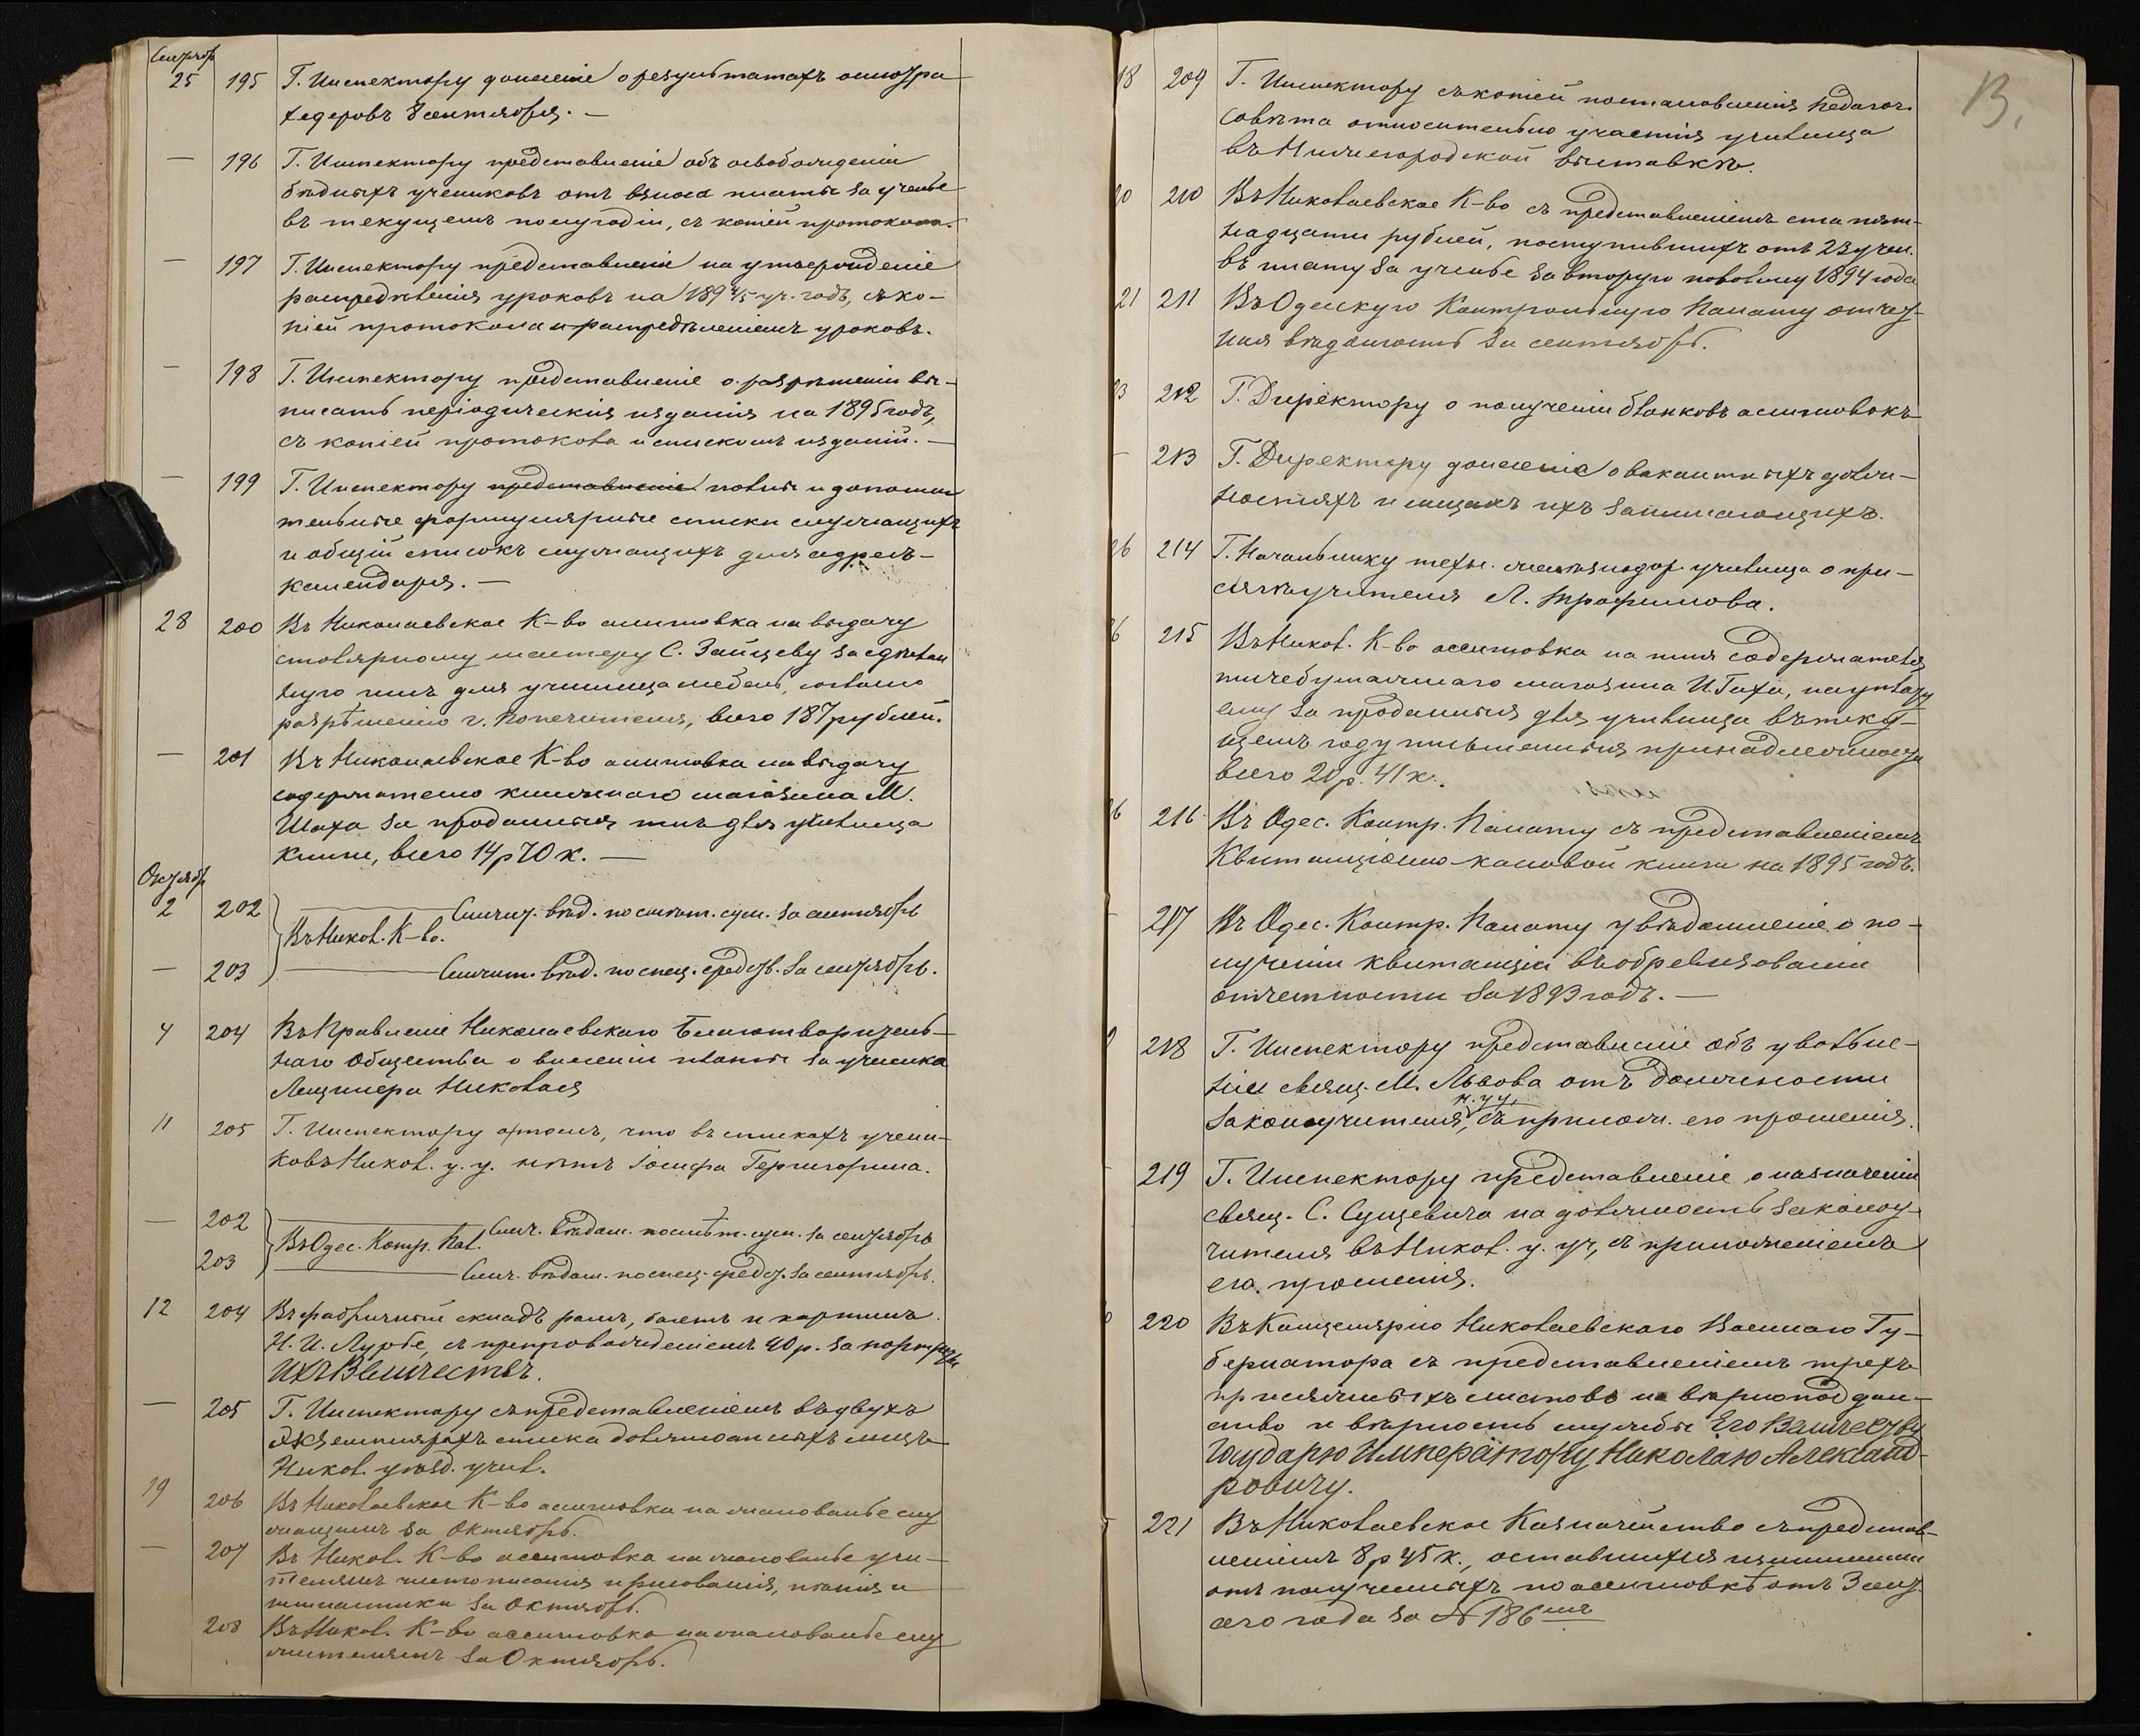 Сентябр
25 195 Г. Инспектору донесеніе о результатахъ осмотра
хедеровъ 8 сентября. —
— 196 Г. Инспектору представленіе объ освобожденіи
бѣдныхъ учениковъ отъ взноса платы за ученье
въ текущемъ полугодіи, съ копіей протокола.
— 197 Г. Инспектору представленіе на утвержденіе
распредѣленія уроковъ на 189 4/5 уч. годъ, съ ко-
піей протокола и распредѣленіемъ уроковъ.
— 198 Г. Инспектору представленіе о разрѣшеніи вы-
писать періодическія изданія на 1895 годъ,
съ копіей протокола и спискомъ изданій. —
— 199 Г. Инспектору представленіе полные и дополни
тельные формулярные списки служащихъ
и общій списокъ служащихъ для адресъ-
календаря. —
28 200 Въ Николаевское К-во ассигновка на выдачу
столярному мастеру С. Зайцеву за сдѣлан
ную имъ для училища мебель, согласно
разрѣшенію г. Попечителя, всего 187 рублей.
— 201 Въ Николаевское К-во ассигновка на выдачу
содержателю книжнаго магазина М.
Шаха за проданныя имъ для училища
книги, всего 14 р 70 к. —
Октябр
2 202 Въ Никол. К-во. Сличит. вѣд. по смѣт. сум. за сентябрь
— 203 Сличит. вѣд. по спец. средств. за сентябрь.
4 204 Въ Правленіе Николаевскаго Благотворитель-
наго Общества о внесеніи платы за ученика
Лещинера Николая
11 205 Г. Инспектору о томъ, что въ спискахъ учени-
ковъ Никол. у. у. нѣтъ Іосифа
— 202 Въ Одес. Контр. Пал. Слич. вѣдом. по смѣт. сум. за сентябрь
203 Слич. вѣдом. по спец. средст. за сентябрь.
12 204 Въ фабричный складъ рамъ, багетъ и картинъ
И. И. Лурье, съ препровожденіемъ 40 р. за портреты
Ихъ Величествъ.
— 205 Г. Инспектору съ представленіемъ въ двухъ
экземплярахъ списка должностныхъ лицъ
Никол. уѣзд. учил.
19 206 Въ Николаевское К-во ассигновка на жалованье слу
жащимъ за Октябрь.
— 207 Въ Никол. К-во ассигновка на жалованье учи-
телямъ чистописанія и рисованія, пѣнія и
гимнастики за Октябрь.
208 Въ Никол. К-во ассигновка на жалованье слу
жителямъ за Октябрь.
13.
18 209 Г. Инспектору съ копіей постановленія педагог.
Совѣта относительно участія училища
въ Нижегородской выставкѣ.
20 210 Въ Николаевское К-во съ представленіемъ ста пят-
надцати рублей, поступившихъ отъ 23 учен.
въ плату за ученье за вторую половину 1894 года
21 211 Въ Одесскую Контрольную Палату отчет-
ная вѣдомость за сентябрь.
23 212 Г. Директору о полученіи бланковъ ассигновокъ
— 213 Г. Директору донесеніе о вакантныхъ долж-
ностяхъ и лицахъ ихъ занимающихъ.
26 214 Г. Начальнику техн. желѣзнодор. училища о при-
сягѣ учителя Л. Трофимова.
26 215 Въ Никол. К-во ассигновка на имя содержателя
писчебумажнаго магазина И. Гаха, на уплату
ему за проданныя для училища въ теку-
щемъ году письменныя принадлежности
всего 20 р. 41 к.
26 216 Въ Одес. Контр. Палату съ представленіемъ
Квитанціонно-кассовой книги на 1895 годъ.
— 217 Въ Одес. Контр. Палату увѣдомленіе о по-
лученіи квитанціи въ обревизованіи
отчетности за 1893 годъ. —
218 Г. Инспектору представленіе объ увольне-
ніи свящ. М. Львова отъ должности
законоучителя н. у у, съ прилож. его прошенія.
219 Г. Инспектору представленіе о назначеніи
свящ. С. Сущевича на должность законоу-
чителя въ Никол. у. уч, съ приложеніемъ
его прошенія.
220 Въ Канцелярію Николаевскаго Военнаго Гу-
бернатора съ представленіемъ трехъ
присяжныхъ листовъ на вѣрноподдан-
ство и вѣрность службы Его Величеству
Государю Императору Николаю Александ-
ровичу.
221 Въ Николаевское Казначейство съ представ-
леніемъ 8 р 45 к., оставшихся излишними
отъ полученныхъ по ассигновкѣ отъ 3 сент.
сего года за № 186 мъ